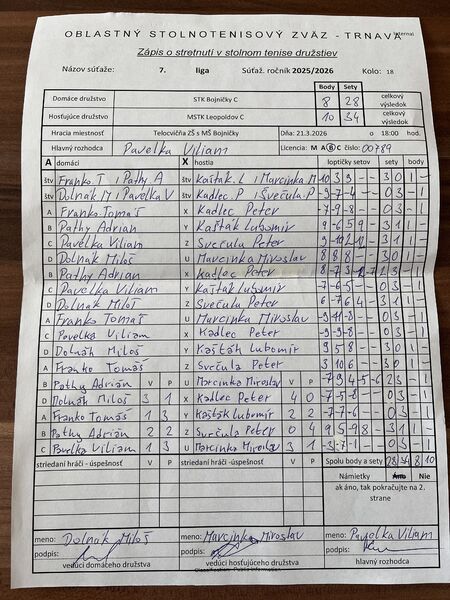 Internal
OBLASTNÝ STOLNOTENISOVÝ ZVÄZ - TRNAVA
Zápis o stretnutí v stolnom tenise družstiev
Názov súťaže: 7. liga Súťaž. ročník 2025/2026 Kolo: 18
Body Sety
Domáce družstvo STK Bojničky C 8 28 celkový výsledok
Hosťujúce družstvo MSTK Leopoldov C 10 34 celkový výsledok
Hracia miestnosť Telocvičňa ZŠ s MŠ Bojničky Dňa: 21.3.2026 o 18:00 hod.
Hlavný rozhodca Pavelka Viliam Licencia: M A B C číslo: 00789
A domáci X hostia loptičky setov sety body
štv Franko.T i Pathy.A štv Kašťák.L i Marcinka.M 3 0 1 -
štv Dolnák M i Pavelka V štv Kadlec.P i Švečula.P -9 -7 -4 - - 0 3 - 1
A Franko Tomáš X Kadlec Peter -7 -9 -8 - - 0 3 - 1
B Pathy Adrián Y Kašťák Ľubomír 9 -6 5 9 - 3 1 1 -
C Pavelka Viliam Z Svečula Peter 3 1 1 -
D Dolnák Miloš U Marcinka Miroslav 8 8 8 - - 3 0 1 -
B Pathy Adrián X Kadlec Peter 2 3 - 1
C Pavelka Viliam Y Kašťák Ľubomír 0 3 - 1
D Dolnák Miloš Z Svečula Peter 6 -7 6 4 - 3 1 1 -
A Franko Tomáš U Marcinka Miroslav -9 -11 -8 - - 0 3 - 1
C Pavelka Viliam X Kadlec Peter -9 -9 -8 - - 0 3 - 1
D Dolnák Miloš Y Kašťák Ľubomír 9 5 8 - - 3 0 1 -
A Franko Tomáš Z Svečula Peter 3 10 6 - - 3 0 1 -
B Pathy Adrián V P U Marcinka Miroslav V P -7 9 4 -5 -6 2 3 - 1
D Dolnák Miloš 3 1 X Kadlec Peter 4 0 -7 -5 -8 - - 0 3 - 1
A Franko Tomáš 1 3 Y Kašťák Ľubomír 2 2 -7 -7 -6 - - 0 3 - 1
B Pathy Adrián 2 2 Z Svečula Peter 0 4 9 5 -9 8 - 3 1 1 -
C Pavelka Viliam 1 3 U Marcinka Miroslav 3 1 -3 -7 -1 - - 0 3 - 1
striedaní hráči - úspešnosť V P striedaní hráči -úspešnosť V P Spolu body a sety 28 34 8 10
Námietky Áno Nie
ak áno, tak pokračujte na 2. strane
meno: Dolnák Miloš meno: Marcinka Miroslav meno: Pavelka Viliam
podpis: podpis: podpis:
vedúci domáceho družstva vedúci hosťujúceho družstva hlavný rozhodca
Classification: Public Information